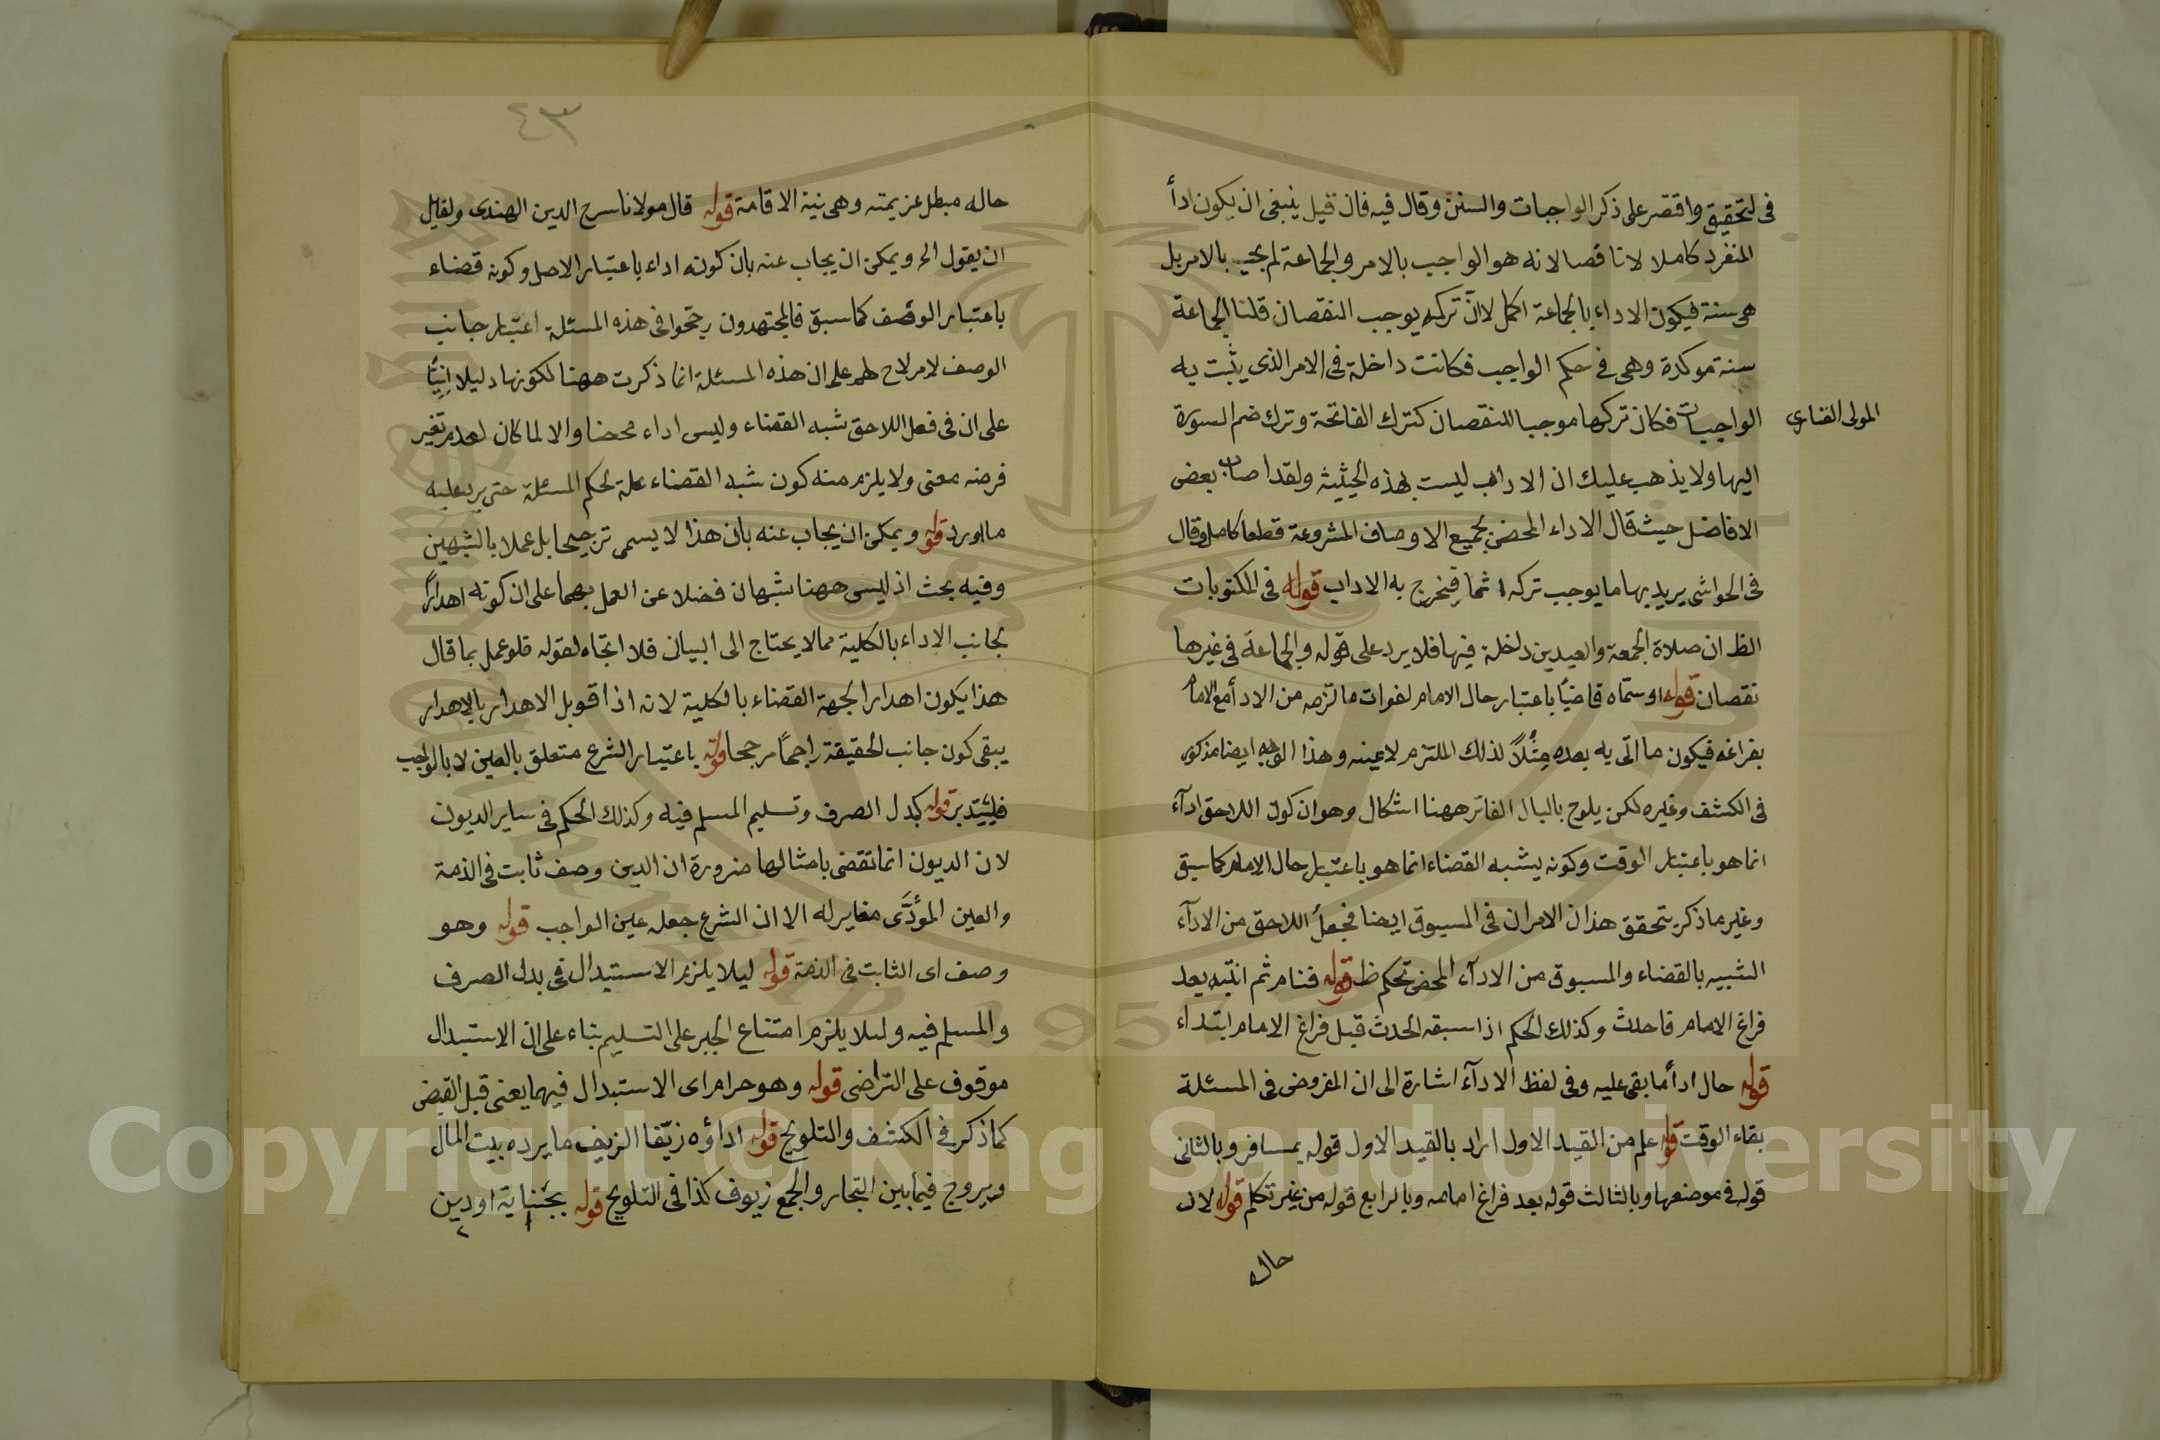 فى التحقيق واقتصر على ذكر الواجبات والسنن وقال فيه فان قيل ينبغى ان يكون ادأ
المنفرد كاملا لا ناقصا لانه هو الواجب بالامر والجماعة لم يجب بالامر بل
هى سنة فيكون الاداء بالجماعة اكمل لا ان تركه يوجب النقصان قلنا الجماعة
سنة موكدة وهى فى حكم الواجب فكانت داخلة فى الامر الذى يثبت به
الواجبات فكان تركها موجبا للنقصان كترك الفاتحة وترك ضم السورة
المولى الفنارى
اليها ولا يذهب عليك ان الاداب ليست بهذه الحيثية ولقد اصاب بعض
الافاضل حيث قال الاداء المحض بجميع الاوصاف المشروعة قطعا كامل وقال
فى الحواشى يريد بها ما يوجب تركه اثما فيخرج به الاداب قوله فى المكتوبات
الظ ان صلاة الجمعة والعيدين داخلة فيها فلا يرد على قوله والجماعة فى غيرها
نقصان قوله او سماه قاضيا باعتبار حال الامام لفوات ما التزمه من الادأ مع الامام
بفراغه فيكون ما اتى به بعده مثلا لذلك الملتزم لا عينه وهذا الوجه ايضا مذكور
فى الكشف وغيره لكن يلوح بالبال الفاتر ههنا اشكال وهو ان كون اللاحق ادآء
انما هو باعتبار الوقت وكونه يشبه القضاء انما هو باعتبار حال الامام كما سبق
وغير ما ذكر يتحقق هذان الامران فى المسبوق ايضا فجعل اللاحق من الادآء
الشبيه بالقضاء والمسبوق من الادآء المحض تحكم ظ قوله فنام ثم انتبه بعد
فراغ الامام فاحدث وكذلك الحكم اذا سبقه الحدث قبل فراغ الامام ابتداء
قوله حال ادأ ما بقى عليه وفى لفظ الادآء اشارة الى ان المفروض فى المسئلة
بقاء الوقت قوله علم من القيد الاول اراد بالقيد الاول قوله بمسافر وبالثانى
قوله فى موضعها وبالثالث قوله بعد فراغ امامه وبالرابع قوله من غير تكلم قوله لان
حاله
٤٣
حاله مبطل عزيمته وهى نية الاقامة قوله قال مولانا سرج الدين الهندى ولقايل
ان يقول الح ويمكن ان يجاب عنه بان كونه اداء باعتبار الاصل وكونه قضاء
باعتبار الوصف كما سبق فالمجتهدون رجحوا فى هذه المسئلة اعتبار جانب
الوصف لامر لاح لهم على ان هذه المسئلة انما ذكرت ههنا لكونها دليلا انيا
على ان فى فعل اللاحق شبه القضاء وليس اداء محضا والا لما كان لعدم تغير
فرضه معنى ولا يلزم منه كون شبه القضاء علة لحكم المسئلة حتى يرد عليه
ما اورد قوله ويمكن ان يجاب عنه بان هذا لا يسمى ترجيحا بل عملا بالشبهين
وفيه بحث اذ ليس ههنا شبهان فضلا عن العمل بهما على ان كونه اهدارا
لجانب الاداء بالكلية مما لا يحتاج الى البيان فلا اتجاه لقوله فلو عمل بما قال
هذا يكون اهدار الجهة القضاء بالكلية لانه اذا قوبل الاهدار بالاهدار
يبقى كون جانب الحقيقة راجحا مرجحا قوله باعتبار الشرع متعلق بالعين لا بالواجب
فليتدبر قوله كبدل الصرف وتسليم المسلم فيه وكذلك الحكم فى ساير الديون
لان الديون انما تقضى بامثالها ضرورة ان الدين وصف ثابت فى الذمة
والعين المؤدى مغاير له الا ان الشرع جعله عين الواجب قوله وهو
وصف اى الثابت فى الذمة قوله ليلا يلزم الاستبدال فى بدل الصرف
والمسلم فيه ولئلا يلزم امتناع الجبر على التسليم بناء على ان الاستبدال
موقوف على التراضى قوله وهو حرام اى الاستبدال فيهما يعنى قبل القبض
كما ذكر فى الكشف والتلويح قوله اداؤه زيفا الزيف ما يرده بيت المال
ويروج فيما بين التجار والجمع زيوف كذا فى التلويح قوله بجناية او دين
Copyright © King Saud University